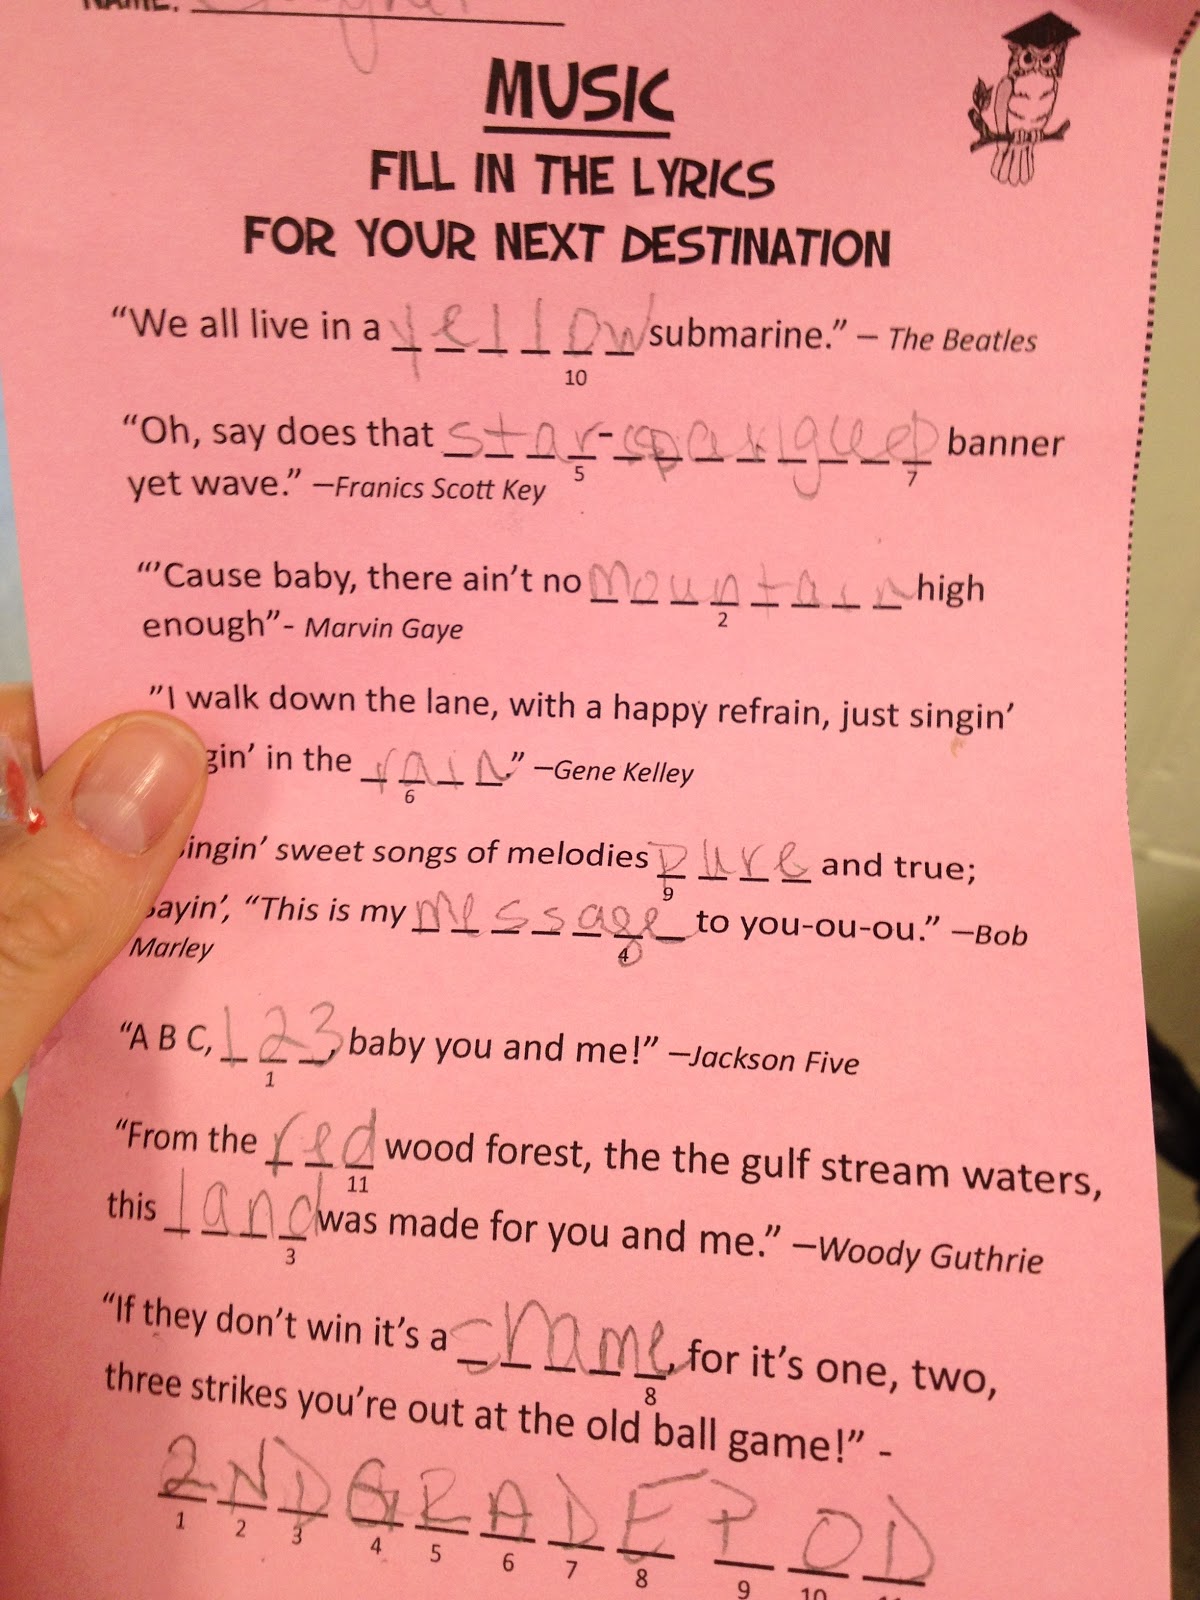 NAME:
MUSIC
FILL IN THE LYRICS
FOR YOUR NEXT DESTINATION
“We all live in a yellow submarine.” – The Beatles
10
“Oh, say does that star-spangued banner
5 7
yet wave.” –Franics Scott Key
“’Cause baby, there ain’t no mountain high
2
enough”- Marvin Gaye
”I walk down the lane, with a happy refrain, just singin’
gin’ in the rain.” –Gene Kelley
6
ingin’ sweet songs of melodies pure and true;
9
ayin’, “This is my message to you-ou-ou.” –Bob
4
Marley
“A B C, 1 2 3, baby you and me!” –Jackson Five
1
“From the red wood forest, the the gulf stream waters,
11
this land was made for you and me.” –Woody Guthrie
3
“If they don’t win it’s a shame, for it’s one, two,
8
three strikes you’re out at the old ball game!” -
2ND GRADE POD
1 2 3 4 5 6 7 8 9 10 11